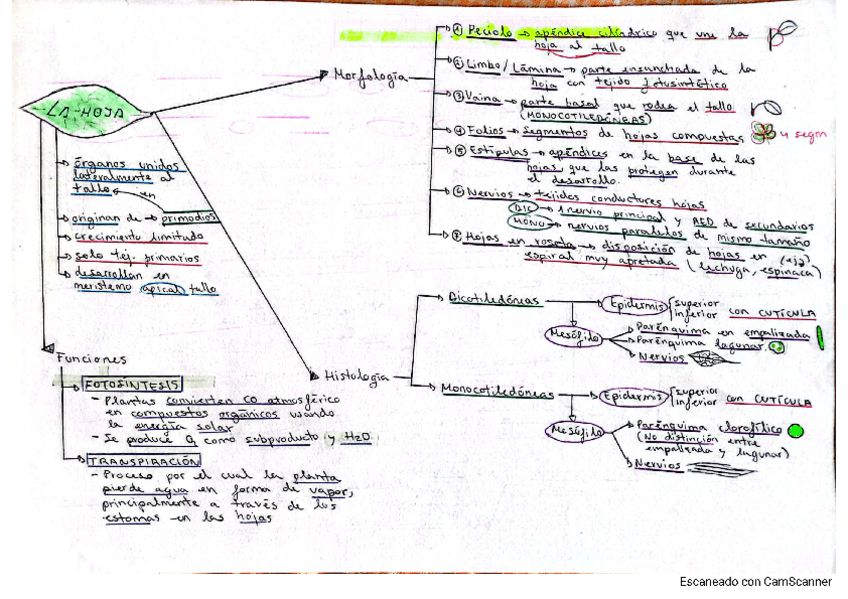 LA HOJA
órganos unidos
lateralmente al
tallo
en
originan de → primodios
crecimiento limitado
solo tej. primarios
desarrollan en
meristemo apical tallo
Funciones
FOTOSÍNTESIS
- Plantas convierten CO atmosférico
en compuestos orgánicos usando
la energía solar
- Se produce O2 como subproducto (y H2O)
TRANSPIRACIÓN
- Proceso por el cual la planta
pierde agua en forma de vapor,
principalmente a través de los
estomas en las hojas
Morfología
① Peciolo → apéndice cilíndrico que une la
hoja al tallo
② Limbo/Lámina → parte ensanchada de la
hoja con tejido fotosintético
③ Vaina → parte basal que rodea el tallo
(MONOCOTILEDÓNEAS)
④ Folios → segmentos de hojas compuestas
4 segm
⑤ Estípulas → apéndices en la base de las
hojas que las protegen durante
el desarrollo.
⑥ Nervios → tejidos conductores hojas
DIC → 1 nervio principal y RED de secundarios
MONO → nervios paralelos de mismo tamaño
⑦ Hojas en roseta → disposición de hojas en (ej)
espiral muy apretada (lechuga, espinaca)
Histología
Dicotiledóneas
Epidermis
superior
inferior con CUTÍCULA
Mesófilo
Parénquima en empalizada
Parénquima lagunar
Nervios
Monocotiledóneas
Epidermis
superior
inferior con CUTÍCULA
Mesófilo
Parénquima clorofílico
(No distinción entre
empalizada y lagunar)
Nervios
Escaneado con CamScanner